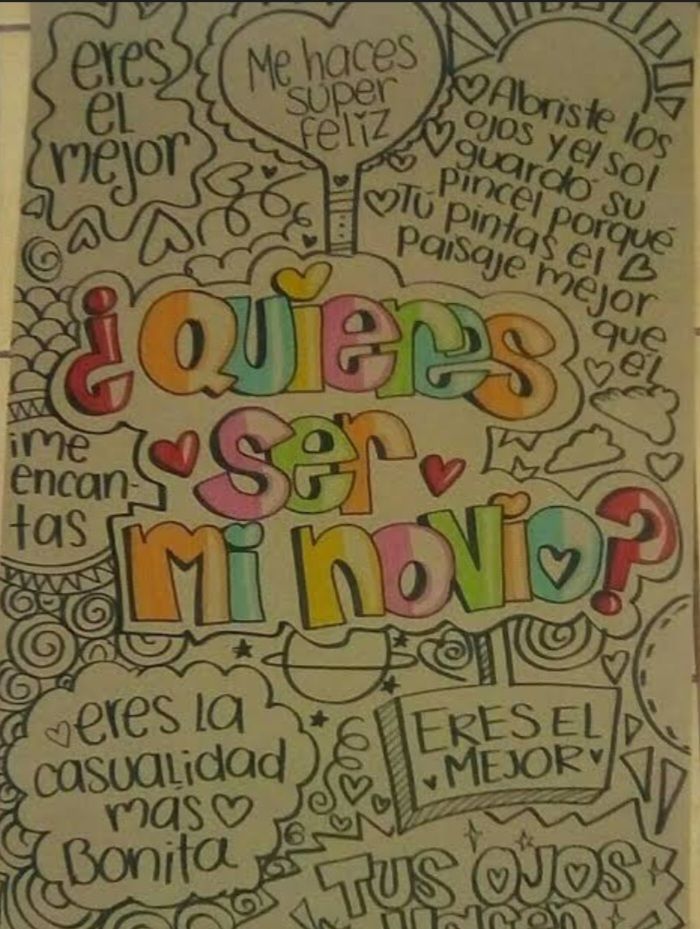 eres
el
mejor
Me haces
super
feliz
Abriste los
ojos y el sol
guardó su
pincel porqué
Tú pintas el
paisaje mejor
que
él
¿Quieres
ser
mi novio?
¡me
encan-
tas
eres la
casualidad
más
Bonita
ERES EL
MEJOR
TUS OJOS